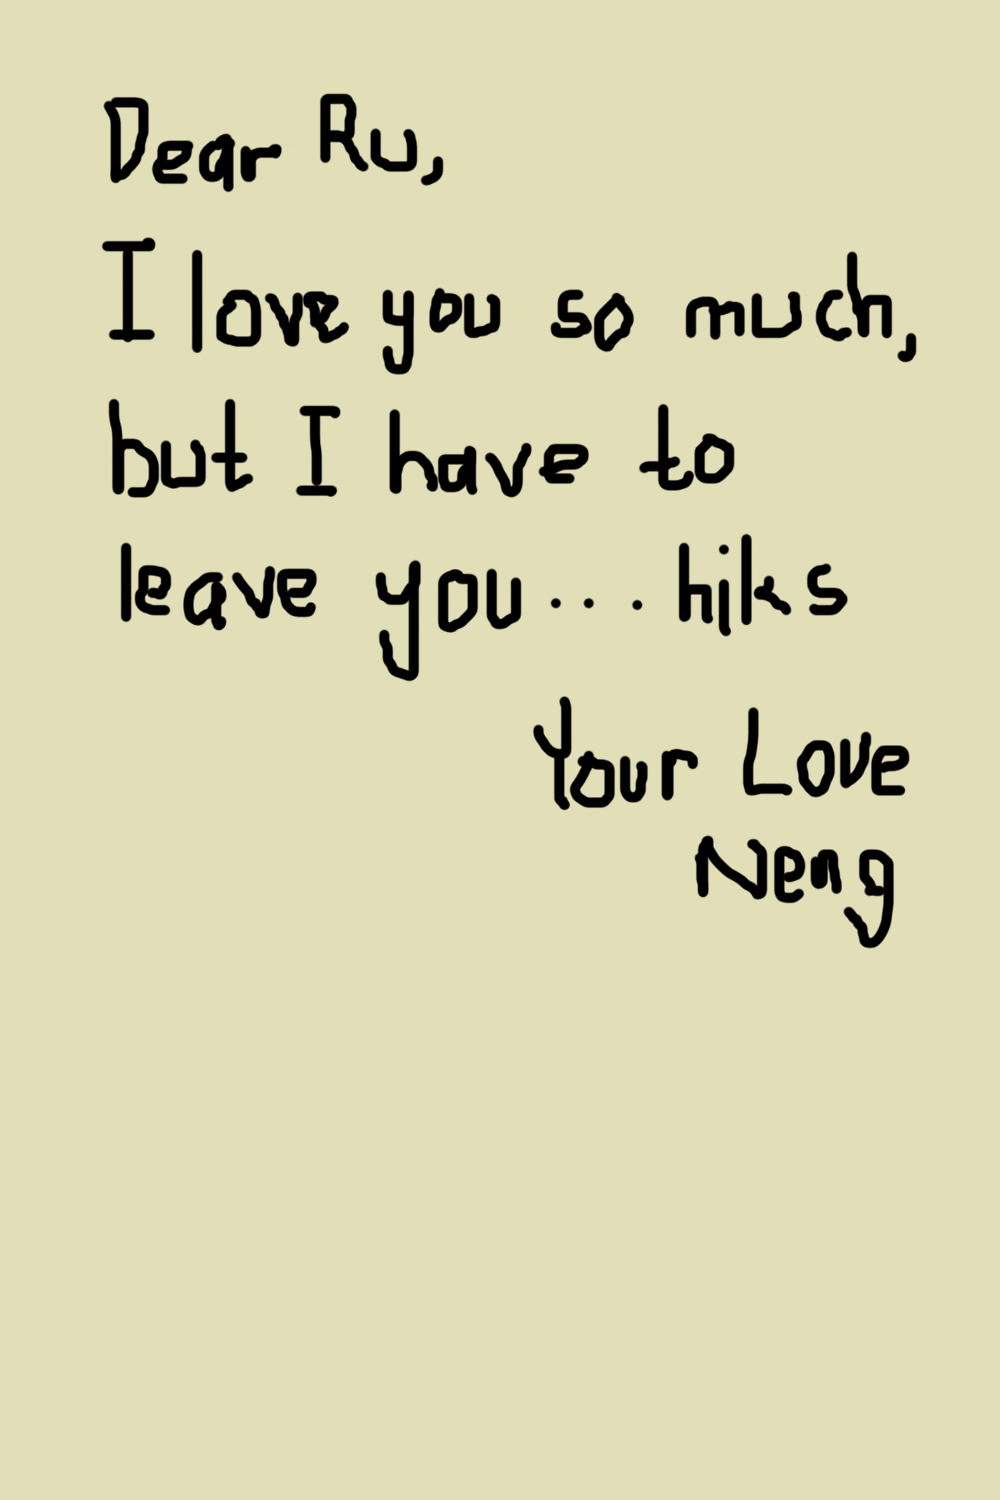 Dear Ru,
I love you so much,
but I have to
leave you... hiks
Your Love
Neng